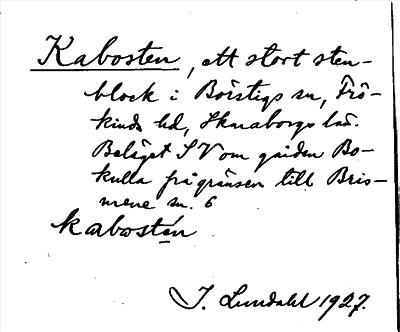 Kabosten, ett stort sten-
block i Börstigs sn, Frö-
kinds hd, Skaraborgs län.
Beläget SV om gården Bo-
kulla på gränsen till Bris-
mene sn. 6
kabostén
J. Lundahl 1927.